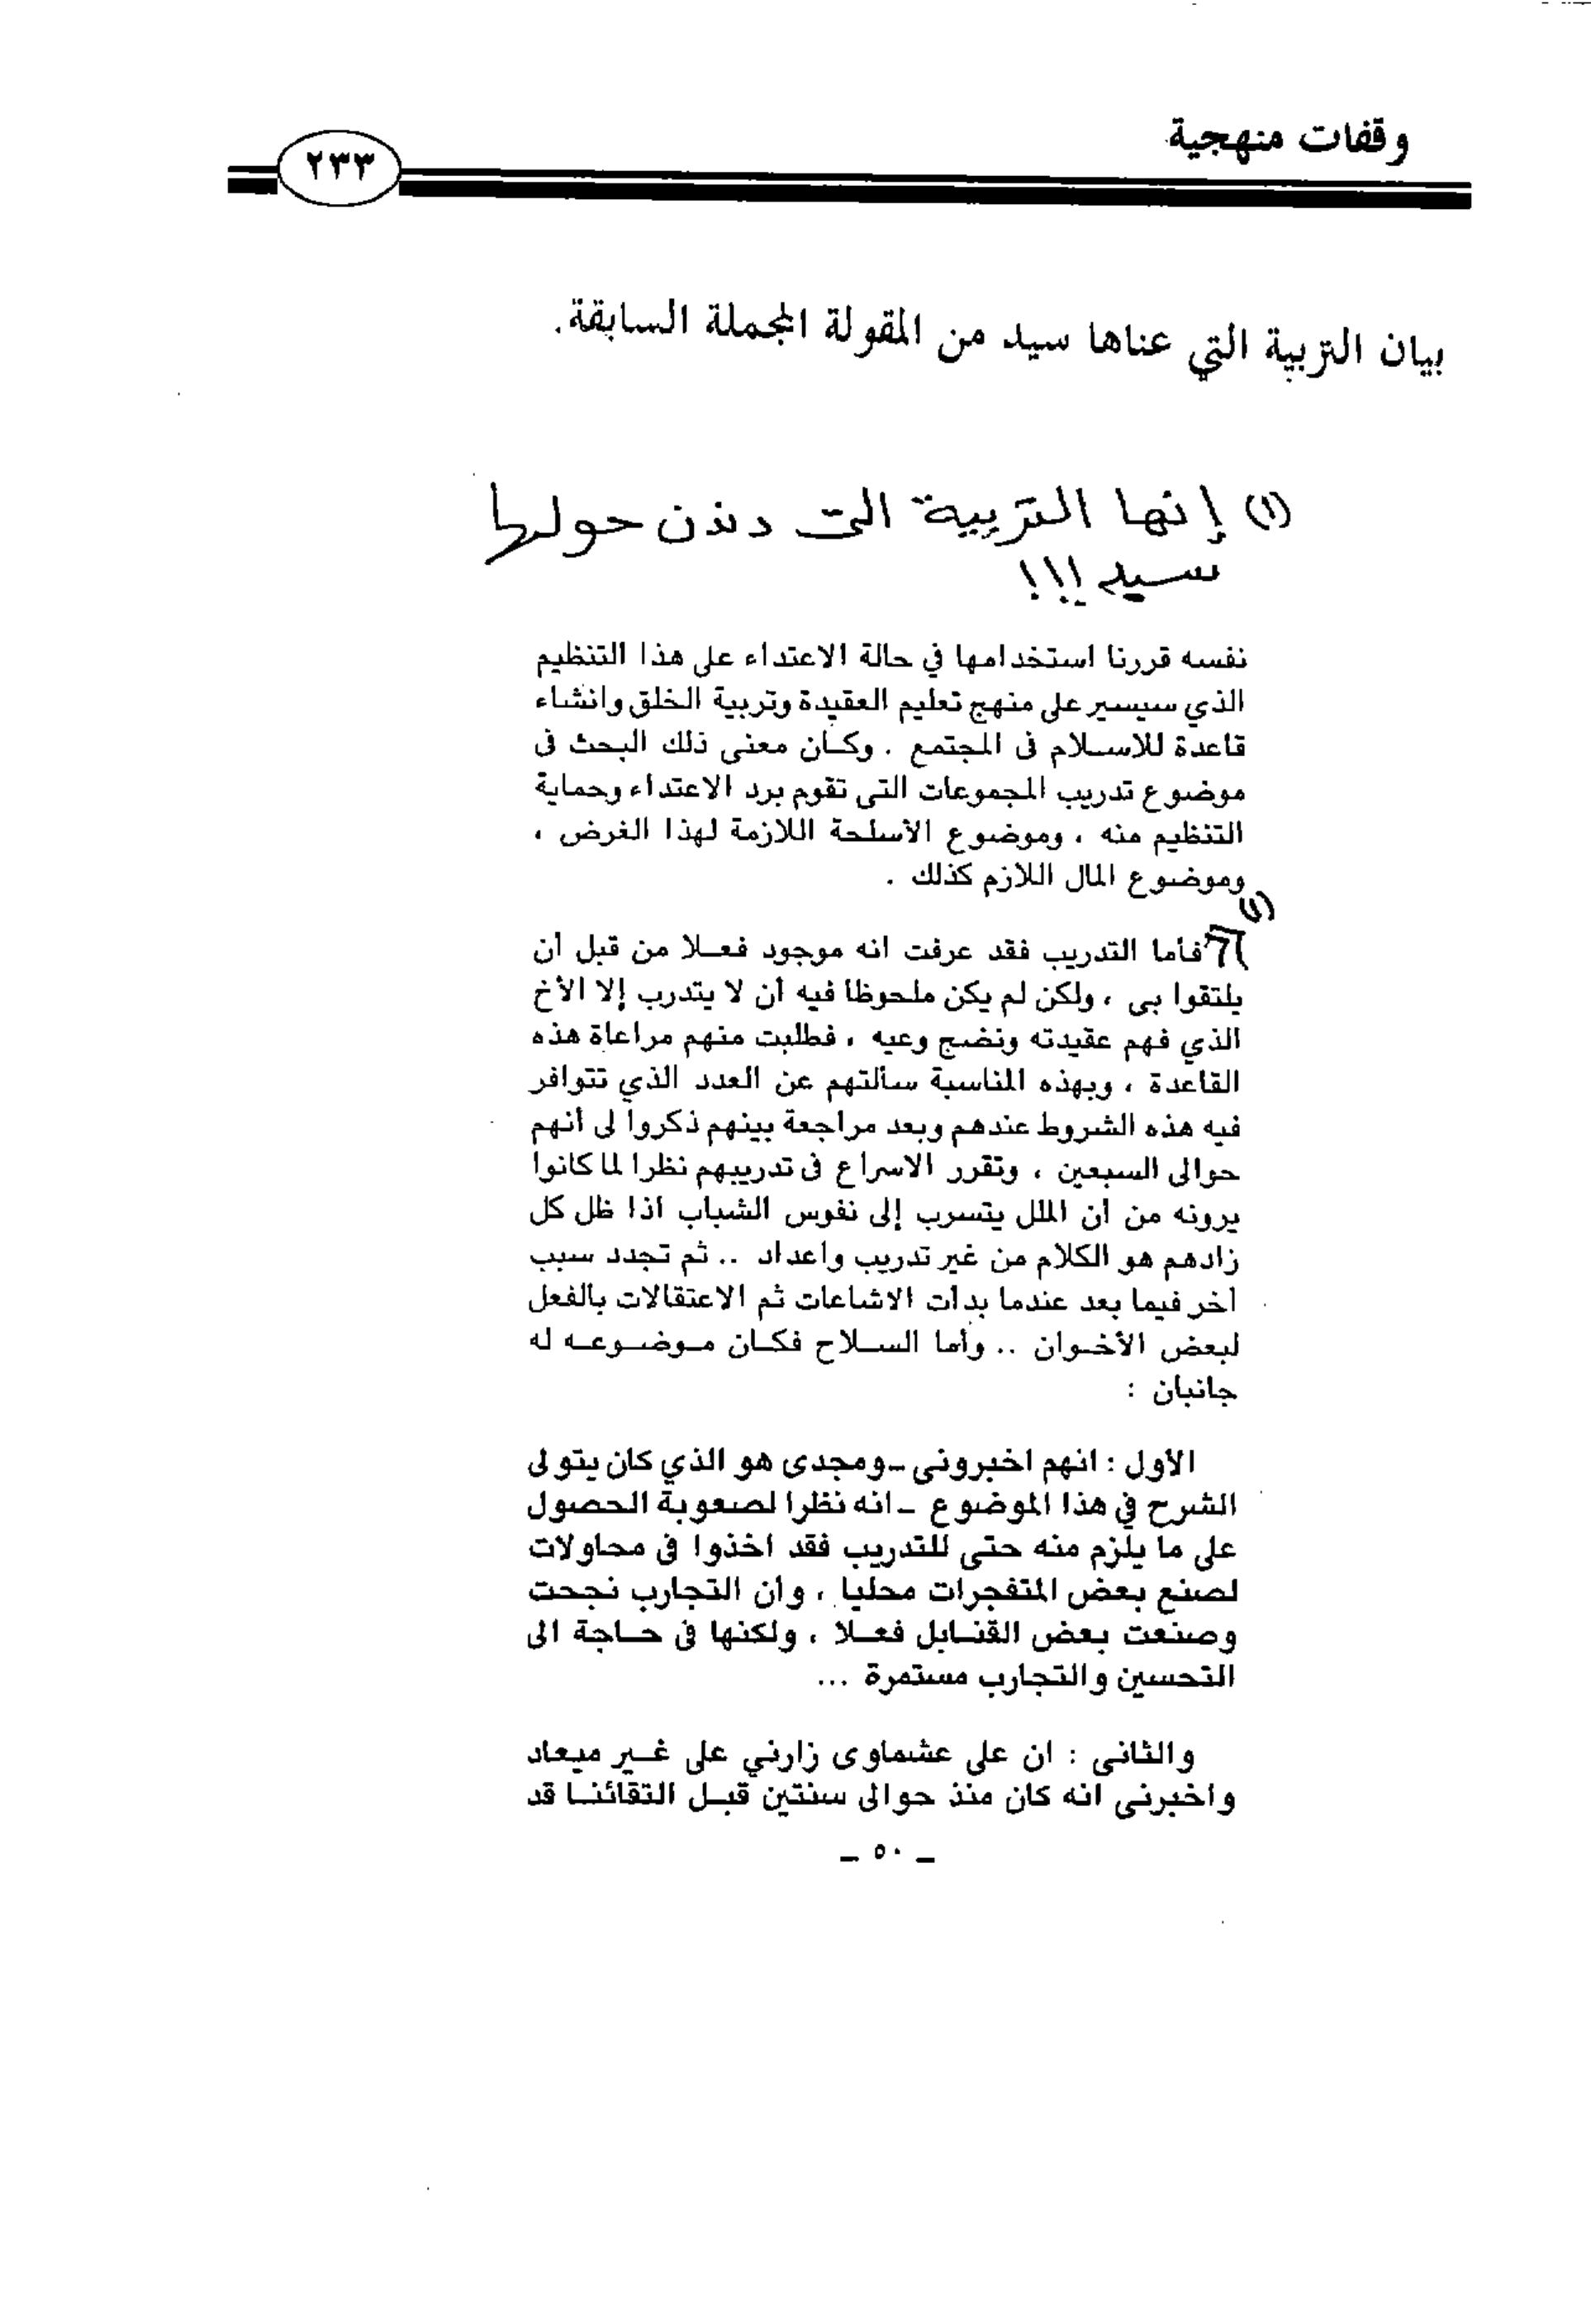 وقفات منهجية
٢٣٣
بيان التربية التي عناها سيد من المقولة المجملة السابقة.
(١) إنها التربية التى دندن حولها
سيد !!!
نفسه قررنا استخدامها في حالة الاعتداء على هذا التنظيم
الذي سيسير على منهج تعليم العقيدة وتربية الخلق وانشاء
قاعدة للاسلام فى المجتمع . وكان معنى ذلك البحث فى
موضوع تدريب المجموعات التى تقوم برد الاعتداء وحماية
التنظيم منه ، وموضوع الأسلحة اللازمة لهذا الغرض ،
وموضوع المال اللازم كذلك .
(١)
فأما التدريب فقد عرفت انه موجود فعلا من قبل أن
يلتقوا بى ، ولكن لم يكن ملحوظا فيه أن لا يتدرب إلا الأخ
الذي فهم عقيدته ونضج وعيه ، فطلبت منهم مراعاة هذه
القاعدة ، وبهذه المناسبة سألتهم عن العدد الذي تتوافر
فيه هذه الشروط عندهم وبعد مراجعة بينهم ذكروا لى أنهم
حوالى السبعين ، وتقرر الاسراع فى تدريبهم نظرا لما كانوا
يرونه من أن الملل يتسرب إلى نفوس الشباب اذا ظل كل
زادهم هو الكلام من غير تدريب واعداد .. ثم تجدد سبب
آخر فيما بعد عندما بدأت الاشاعات ثم الاعتقالات بالفعل
لبعض الأخوان .. وأما السلاح فكان موضوعه له
جانبان :
الأول : انهم اخبرونى -ومجدى هو الذي كان يتولى
الشرح في هذا الموضوع - انه نظرا لصعوبة الحصول
على ما يلزم منه حتى للتدريب فقد اخذوا فى محاولات
لصنع بعض المتفجرات محليا ، وأن التجارب نجحت
وصنعت بعض القنابل فعلا ، ولكنها فى حاجة الى
التحسين والتجارب مستمرة ...
والثانى : ان على عشماوى زارني على غير ميعاد
واخبرنى انه كان منذ حوالى سنتين قبل التقائنا قد
- ٥٠ -